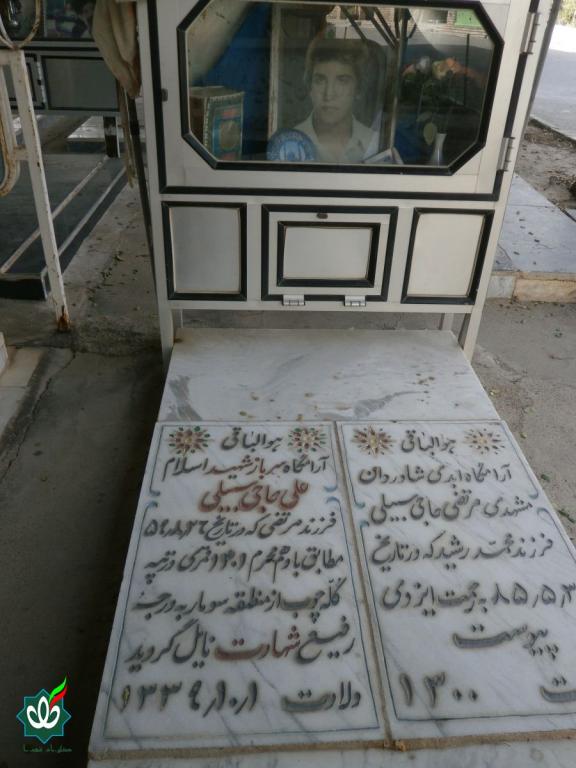 هوالباقی
آرامگاه سرباز شهید اسلام
علی حاجی سبیلی
فرزند مرتضی که در تاریخ ۵۹٫۸٫۲۶
مطابق با دهم محرم ۱۴۰۱ قمری در تپه
کله چوب از منطقه سومار به درجه
رفیع شهادت نایل گردید
ولادت ۱۳۳۹٫۱۰٫۱
هوالباقی
آرامگاه ابدی شادروان
مشهدی مرتضی حاجی سبیلی
فرزند محمد رشید که در تاریخ
۸۵٫۵٫۳ به رحمت ایزدی
پیوست
۱۳۰۰